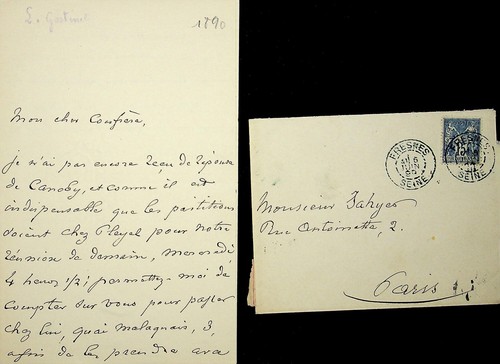 L. Gastinel
1890
Mon cher Confrère,
je n'ai pas encore reçu de réponse
de Canoby, et comme il est
indispensable que les partitions
soient chez Pleyel pour notre
réunion de demain, mercredi,
4 heures 1/2; permettez-moi de
compter sur vous pour passer
chez lui, quai Malaquais, 3,
afin de les prendre avec
FRESNES
6
JUIN
SEINE
FRESNES
SEINE
Monsieur
Rue Antoinette, 2.
Paris